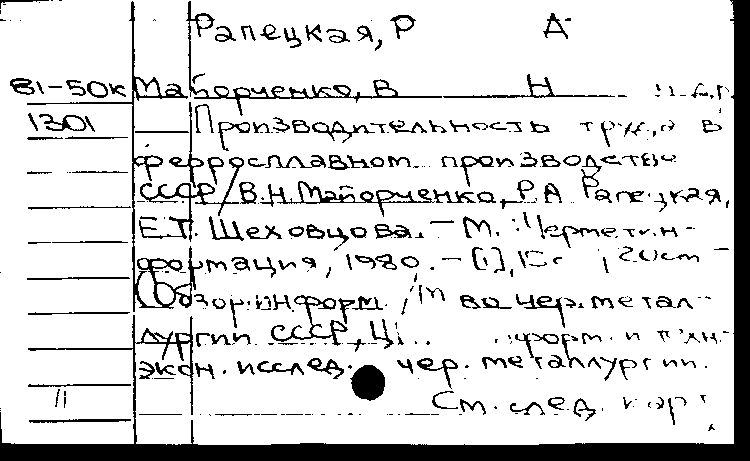 Рапецкая, Р А
81-50к Майорченко, В Н и др.
1301 Производительность труда в
ферросплавном производстве
СССР / В.Н. Майорченко, Р.А Рапецкая,
Е.Т. Шеховцова. – М. : Черметин-
формация, 1980. – [1], 15с ; 20 см –
(Обзор. информ / М во чер. метал-
лургии СССР, Ц форм. и техн-
экон. исслед. чер. металлургии.
11 См. след. карт